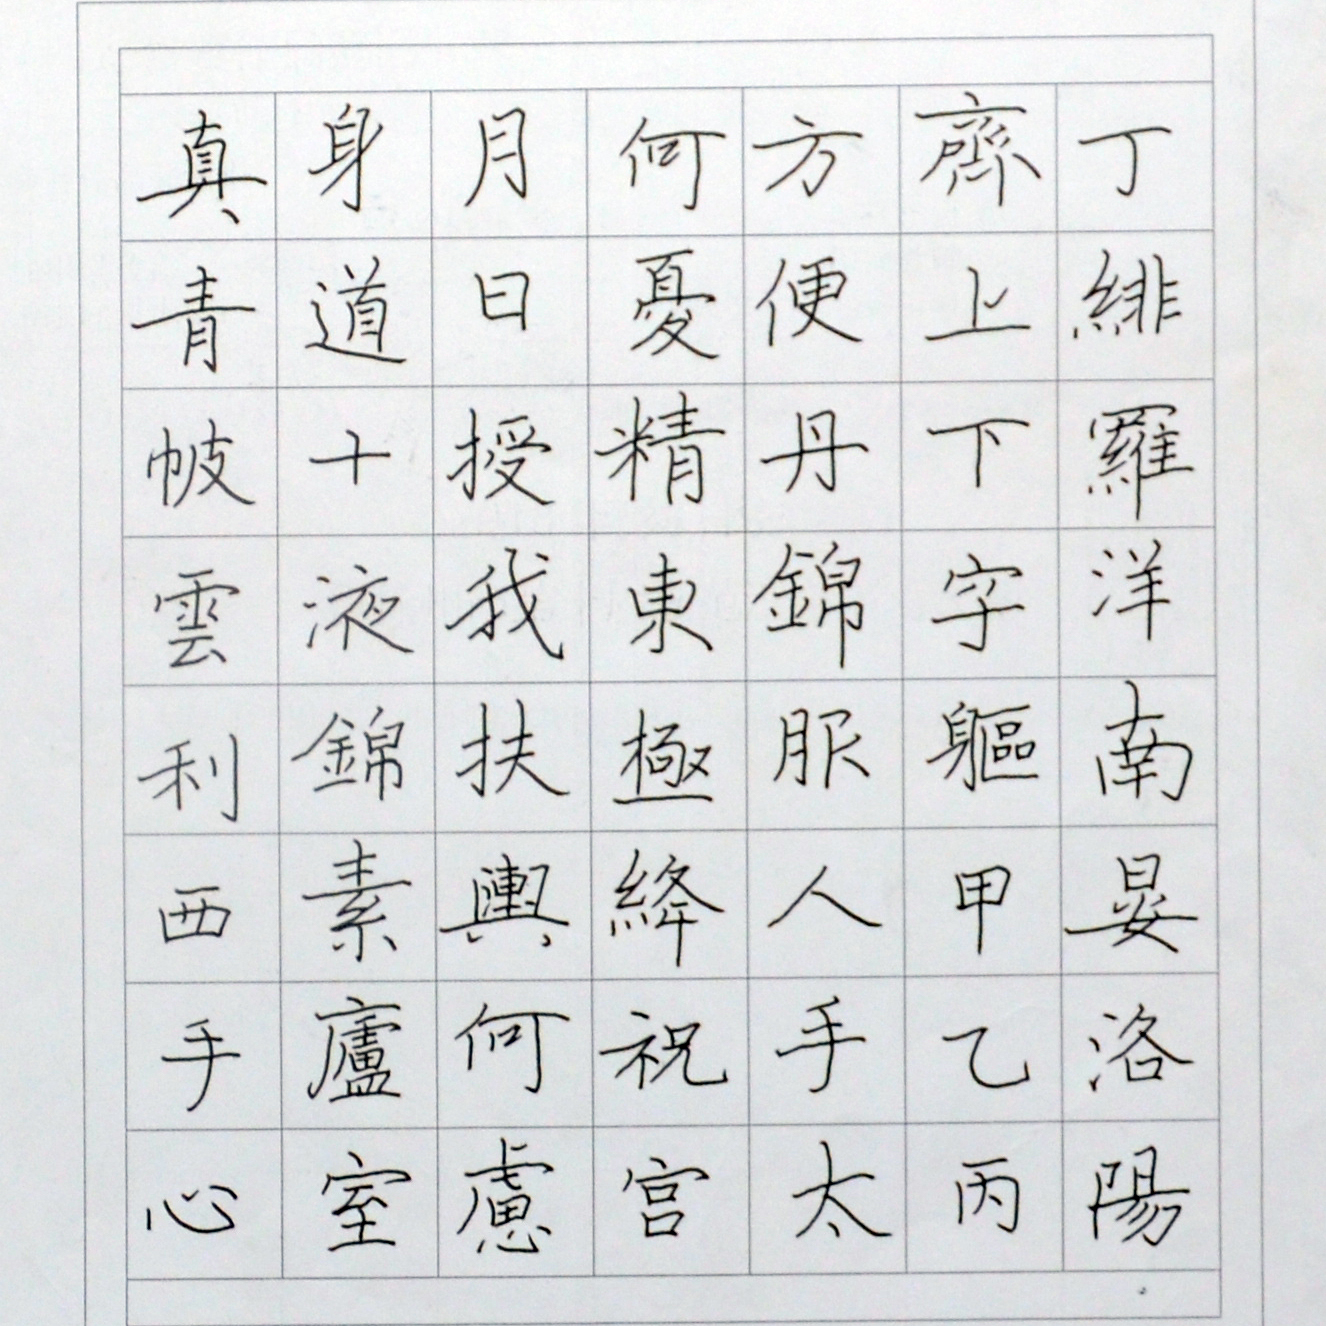 丁緋羅洋南晏洛陽
齊上下字軀甲乙丙
方便丹錦服人手太
何憂精東極絳祝宫
月日授我扶輿何慮
身道十液錦素廬室
真青帔雲利西手心